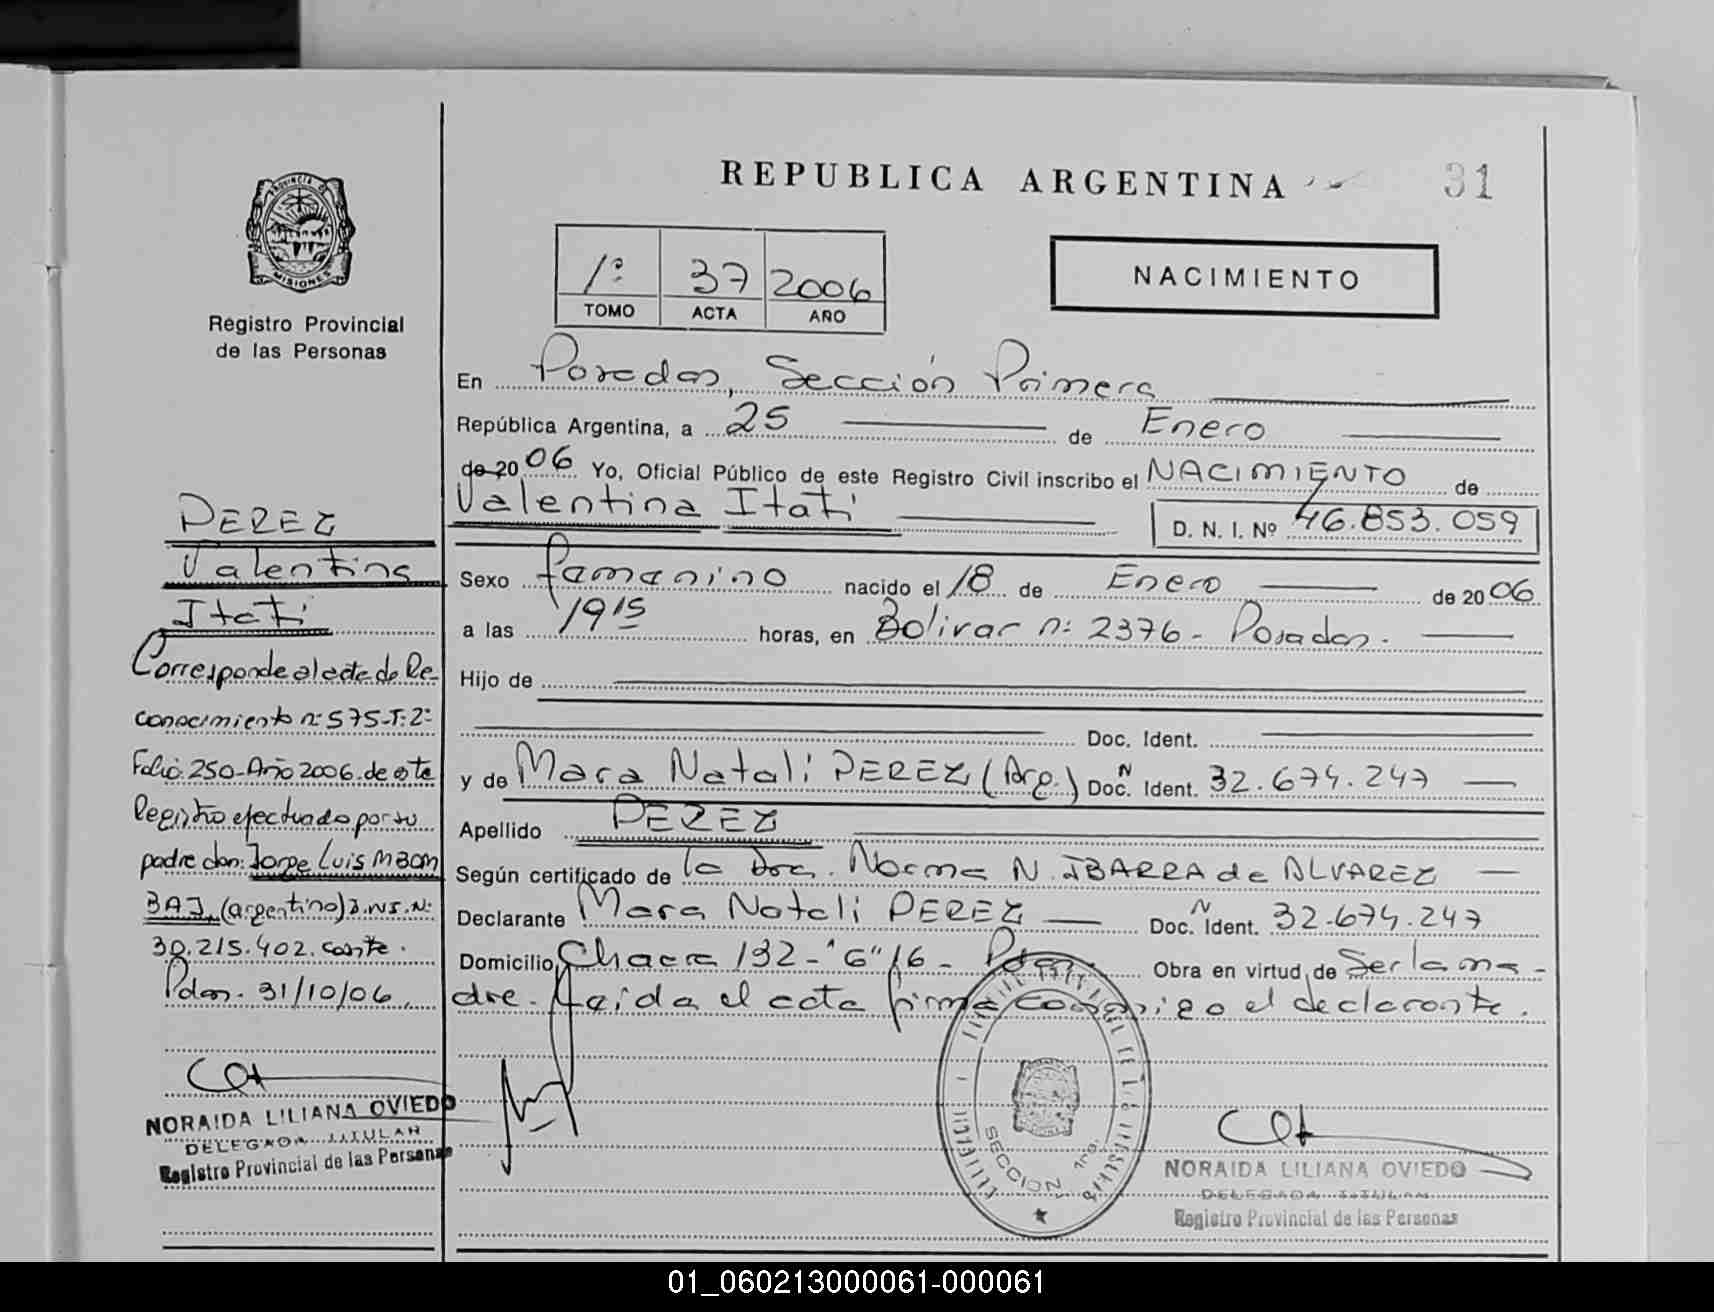 REPUBLICA ARGENTINA
31
PROVINCIA DE
MISIONES
Registro Provincial
de las Personas
1º 37 2006
TOMO ACTA AÑO
NACIMIENTO
En Posadas, Sección Primera
República Argentina, a 25 de Enero
de 20 06 Yo, Oficial Público de este Registro Civil inscribo el NACIMIENTO de
Valentina Itatí
D. N. I. Nº 46.853.059
Sexo famanino nacido el 18 de Enero de 20 06
a las 19 15 horas, en Bolivar nº 2376 - Posadas.
Hijo de
Doc. Ident.
y de Mara Natali PEREZ (Arg.) Doc. N Ident. 32.674.247
Apellido PEREZ
Según certificado de la Dra. Norma N. IBARRA de ALVAREZ
Declarante Mara Natali PEREZ Doc. N Ident. 32.674.247
Domicilio Chacra 132 - "G" 16 - Pdas. Obra en virtud de Ser la ma-
dre. Leida el acta firma conmigo el declarante.
PEREZ
Valentina
Itatí
Corresponde al acta de Re-
conocimiento nº 575-T: 2º
Folio: 250-Año 2006. de este
Registro efectuado por su
padre don: Jorge Luis MBOM
BAJ, (argentino) D.N.I. Nº
30.215.402. conste.
Pdas. 31/10/06.
NORAIDA LILIANA OVIEDO
DELEGADA TITULAR
Registro Provincial de las Personas
SECCION 1ra.
NORAIDA LILIANA OVIEDO
DELEGADA TITULAR
Registro Provincial de las Personas
01_060213000061-000061